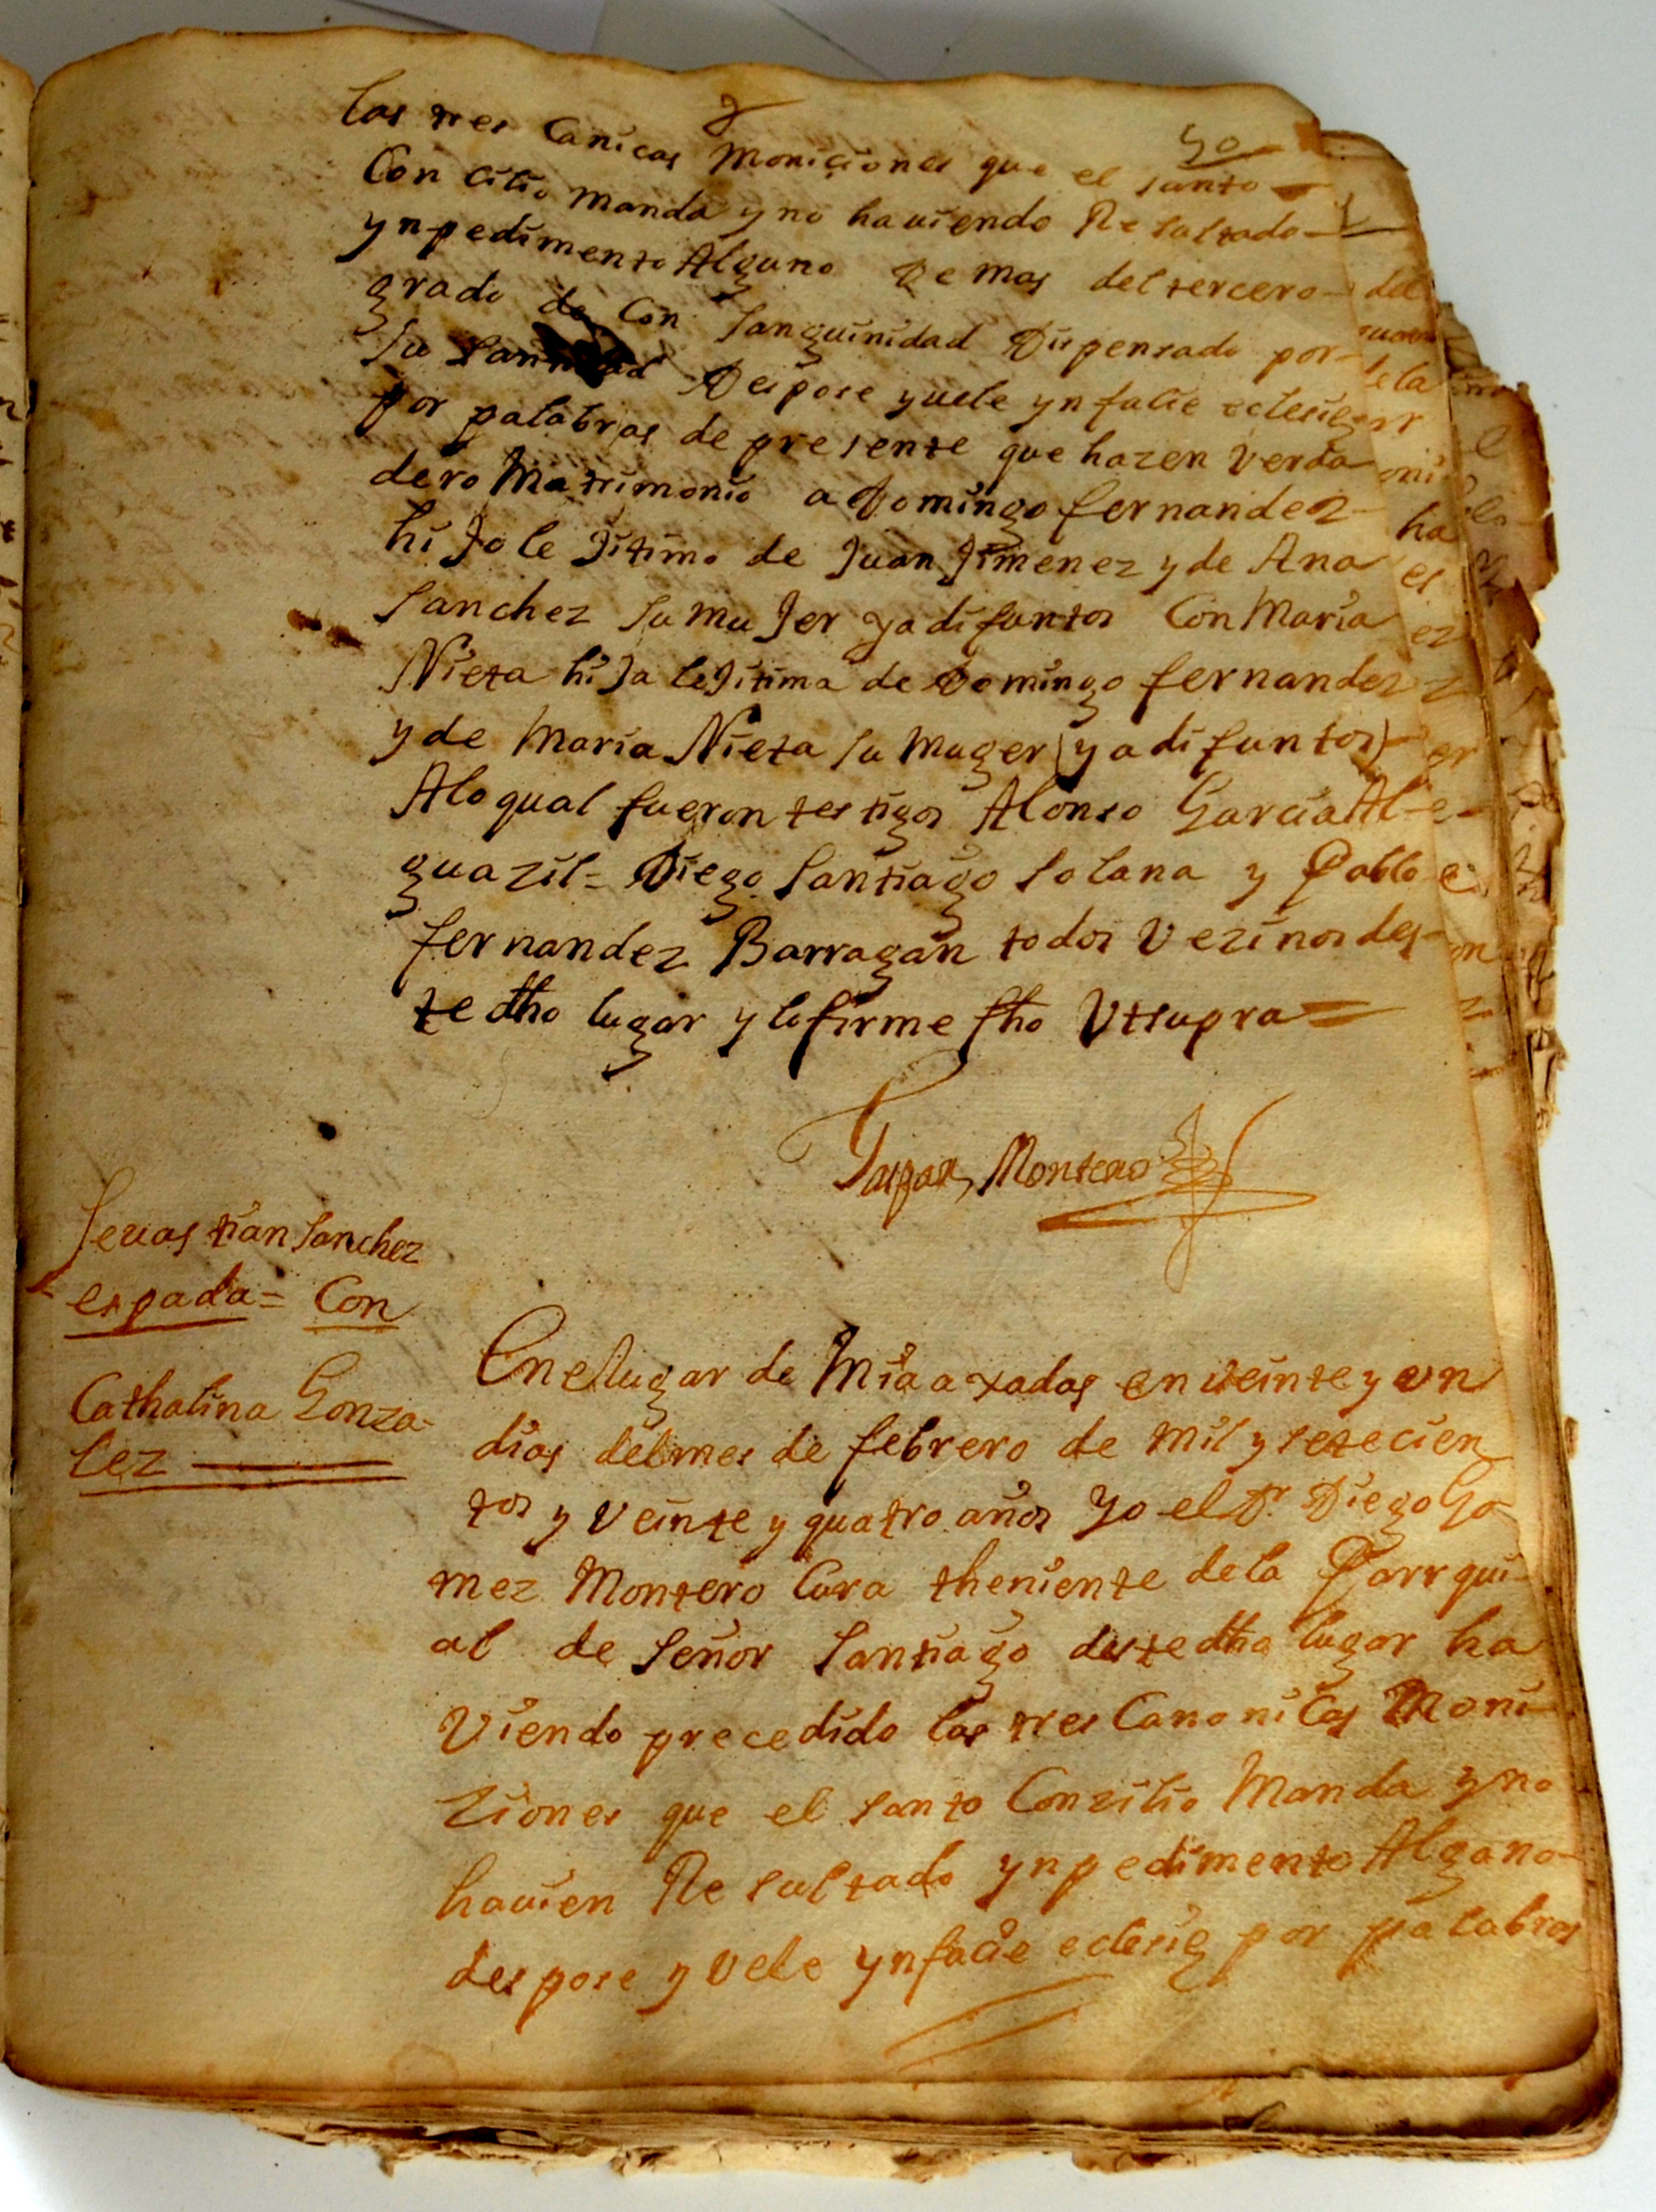 50
las tres Canicas moniciones que el santo
Con cilio manda y no hauiendo Resultado
ynpedimento Alguno de mas del tercero
grado de Con sanguinidad Dispensado por
su santidad Despose y uele yn facie eclesie
por palabras de presente que hazen verda
dero Matrimonio a Domingo fernandez
hiJo leJitimo de Juan Jimenez y de Ana
sanchez su muJer ya difuntos Con Maria
Nieta hiJa leJitima de Domingo fernandez
y de Maria Nieta su muger (ya difuntos)
Alo qual fueron testigos Alonso Garcia Al-
guazil= Diego santiago solana y Pablo
fernandez Barragan todos vezinos des-
te dho lugar y lo firme fho Vtsupra=
Gaspar Montero
Seuastian sanchez
espada= Con
Cathalina Gonza-
lez
En el lugar de Miaaxadas en veinte y un
dias del mes de febrero de mil y setecien
tos y veinte y quatro años Yo el Dr Diego Go
mez Montero Cura theniente de la Parrqui-
al de señor santiago deste dho lugar ha
viendo precedido las tres Canonicas Moni-
ziones que el santo Conzilio Manda y no
hauien Resultado ynpedimento Alguno
despose y vele ynfacie eclesie por palabras